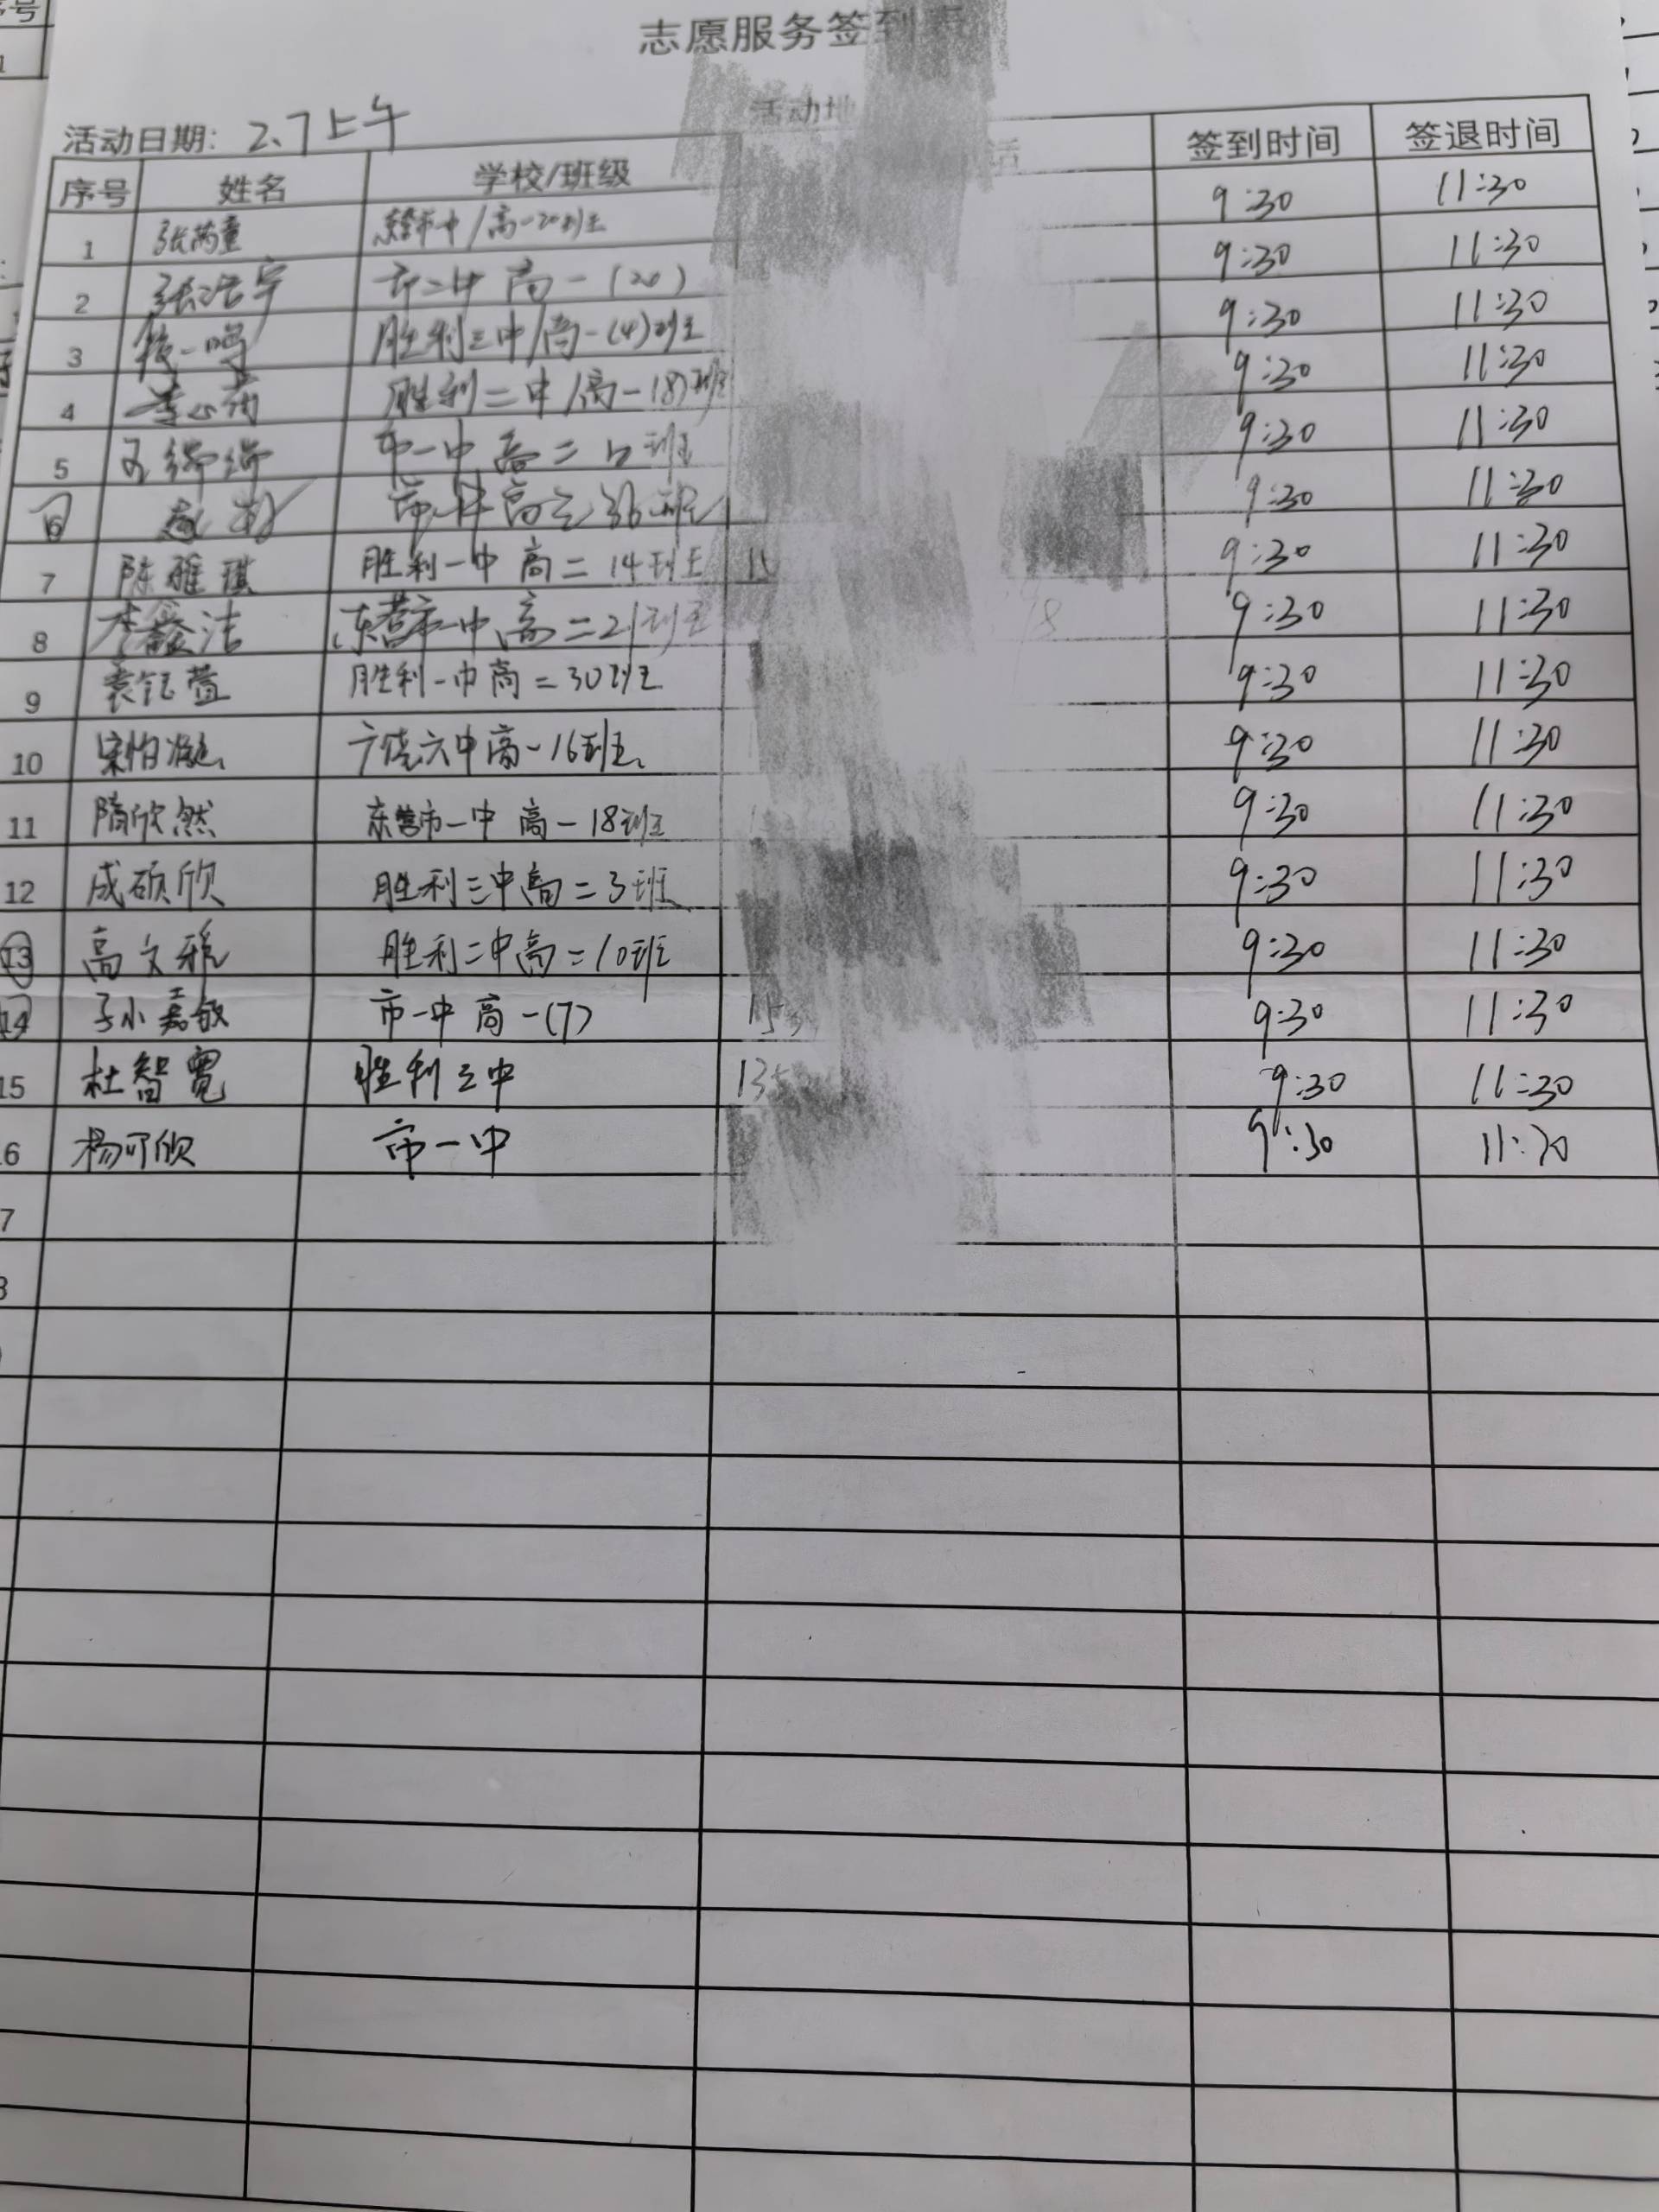 志愿服务签到表
活动日期: 2.7上午 活动地
序号 姓名 学校/班级 话 签到时间 签退时间
1 东营市一中/高一20班 9:30 11:30
2 张浩宇 市二中 高一(20) 9:30 11:30
3 一鸣 胜利三中/高一(4)班 9:30 11:30
4 李心雨 胜利二中/高一(8)班 9:30 11:30
5 市一中 高二 班 9:30 11:30
6 赵 高 36班 9:30 11:30
7 陈雅琪 胜利一中 高二 14班 9:30 11:30
8 李鑫洁 东营市一中高二21班 8 9:30 11:30
9 袁钰萱 胜利一中高二30班 9:30 11:30
10 宋怡凝 广饶六中高一16班 9:30 11:30
11 隋欣然 东营市一中 高一18班 9:30 11:30
12 成硕欣 胜利三中高二3班 9:30 11:30
13 高文雅 胜利二中高二10班 9:30 11:30
14 孙嘉敏 市一中 高一(7) 15 9:30 11:30
15 杜智宽 胜利三中 13 9:30 11:30
16 杨可欣 市一中 9:30 11:30
7